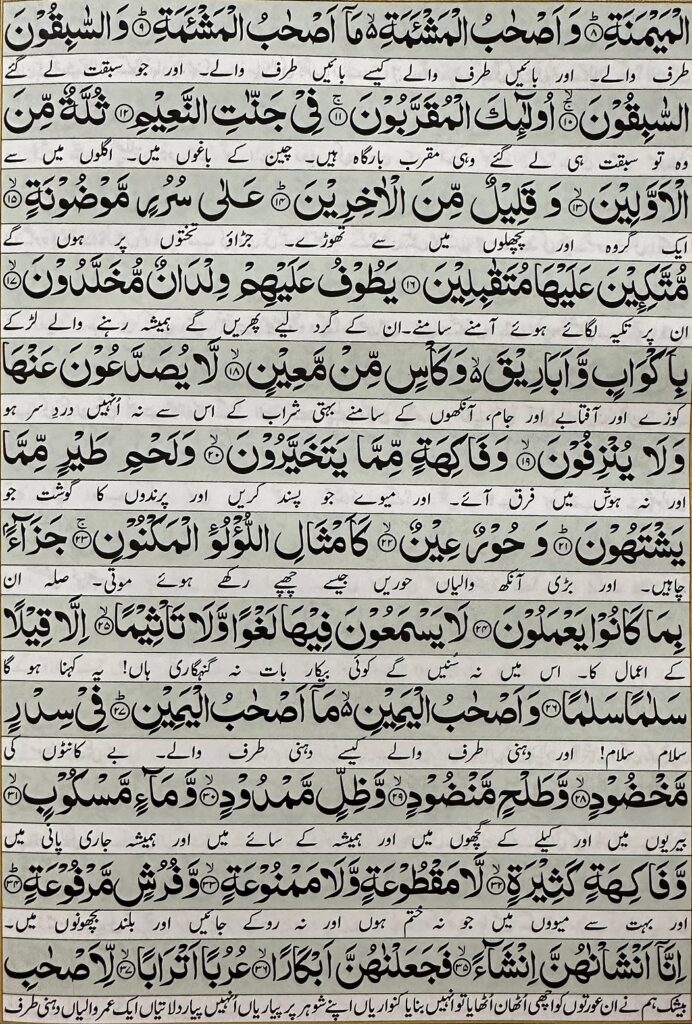 الْمَيْمَنَةِ ۝۸ وَ اَصْحٰبُ الْمَشْـَٔمَةِ ۙ۬ مَاۤ اَصْحٰبُ الْمَشْـَٔمَةِ ۝۹ وَ السّٰبِقُوْنَ
طرف والے۔ اور بائیں طرف والے کیسے بائیں طرف والے۔ اور جو سبقت لے گئے
السّٰبِقُوْنَ ۝۱۰ اُولٰٓىِٕكَ الْمُقَرَّبُوْنَ ۝۱۱ فِیْ جَنّٰتِ النَّعِیْمِ ۝۱۲ ثُلَّةٌ مِّنَ
وہ تو سبقت ہی لے گئے وہی مقرب بارگاہ ہیں۔ چین کے باغوں میں۔ اگلوں میں سے
الْاَوَّلِیْنَ ۝۱۳ وَ قَلِیْلٌ مِّنَ الْاٰخِرِیْنَ ۝۱۴ عَلٰی سُرُرٍ مَّوْضُوْنَةٍ ۝۱۵
ایک گروہ اور پچھلوں میں سے تھوڑے۔ جڑاؤ تختوں پر ہوں گے
مُّتَّكِـِٕیْنَ عَلَیْهَا مُتَقٰبِلِیْنَ ۝۱۶ یَطُوْفُ عَلَیْهِمْ وِلْدَانٌ مُّخَلَّدُوْنَ ۝۱۷
ان پر تکیہ لگائے ہوئے آمنے سامنے۔ ان کے گرد لیے پھریں گے ہمیشہ رہنے والے لڑکے
بِاَكْوَابٍ وَّ اَبَارِیْقَ ۙ۬ وَ كَاْسٍ مِّنْ مَّعِیْنٍ ۝۱۸ لَّا یُصَدَّعُوْنَ عَنْهَا
کوزے اور آفتابے اور جام، آنکھوں کے سامنے بہتی شراب کے اس سے نہ اُنہیں دردِ سر ہو
وَ لَا یُنْزِفُوْنَ ۝۱۹ وَ فَاكِهَةٍ مِّمَّا یَتَخَیَّرُوْنَ ۝۲۰ وَ لَحْمِ طَیْرٍ مِّمَّا
اور نہ ہوش میں فرق آئے۔ اور میوے جو پسند کریں اور پرندوں کا گوشت جو
یَشْتَهُوْنَ ۝۲۱ وَ حُوْرٌ عِیْنٌ ۝۲۲ كَاَمْثَالِ اللُّؤْلُؤِ الْمَكْنُوْنِ ۝۲۳ جَزَآءًۢ
چاہیں۔ اور بڑی آنکھ والیاں حوریں جیسے چھپے رکھے ہوئے موتی۔ صلہ ان
بِمَا كَانُوْا یَعْمَلُوْنَ ۝۲۴ لَا یَسْمَعُوْنَ فِیْهَا لَغْوًا وَّ لَا تَاْثِیْمًا ۝۲۵ اِلَّا قِیْلًا
کے اعمال کا۔ اس میں نہ سُنیں گے کوئی بیکار بات نہ گنہگاری ہاں! یہ کہنا ہو گا
سَلٰمًا سَلٰمًا ۝۲۶ وَ اَصْحٰبُ الْیَمِیْنِ ۙ۬ مَاۤ اَصْحٰبُ الْیَمِیْنِ ۝۲۷ فِیْ سِدْرٍ
سلام سلام! اور دہنی طرف والے کیسے دہنی طرف والے۔ بے کانٹوں کی
مَّخْضُوْدٍ ۝۲۸ وَّ طَلْحٍ مَّنْضُوْدٍ ۝۲۹ وَّ ظِلٍّ مَّمْدُوْدٍ ۝۳۰ وَّ مَآءٍ مَّسْكُوْبٍ ۝۳۱
بیریوں میں اور کیلے کے گچھوں میں اور ہمیشہ کے سائے میں اور ہمیشہ جاری پانی میں
وَّ فَاكِهَةٍ كَثِیْرَةٍ ۝۳۲ لَّا مَقْطُوْعَةٍ وَّ لَا مَمْنُوْعَةٍ ۝۳۳ وَّ فُرُشٍ مَّرْفُوْعَةٍ ۝۳۴
اور بہت سے میووں میں جو نہ ختم ہوں اور نہ روکے جائیں اور بلند بچھونوں میں۔
اِنَّاۤ اَنْشَاْنٰهُنَّ اِنْشَآءً ۝۳۵ فَجَعَلْنٰهُنَّ اَبْكَارًا ۝۳۶ عُرُبًا اَتْرَابًا ۝۳۷ لِّاَصْحٰبِ
بیشک ہم نے ان عورتوں کو اچھی اٹھان اٹھایا تو انہیں بنایا کنواریاں اپنے شوہر پر پیاریاں انہیں پیار دلاتیاں ایک عمر والیاں دہنی طرف